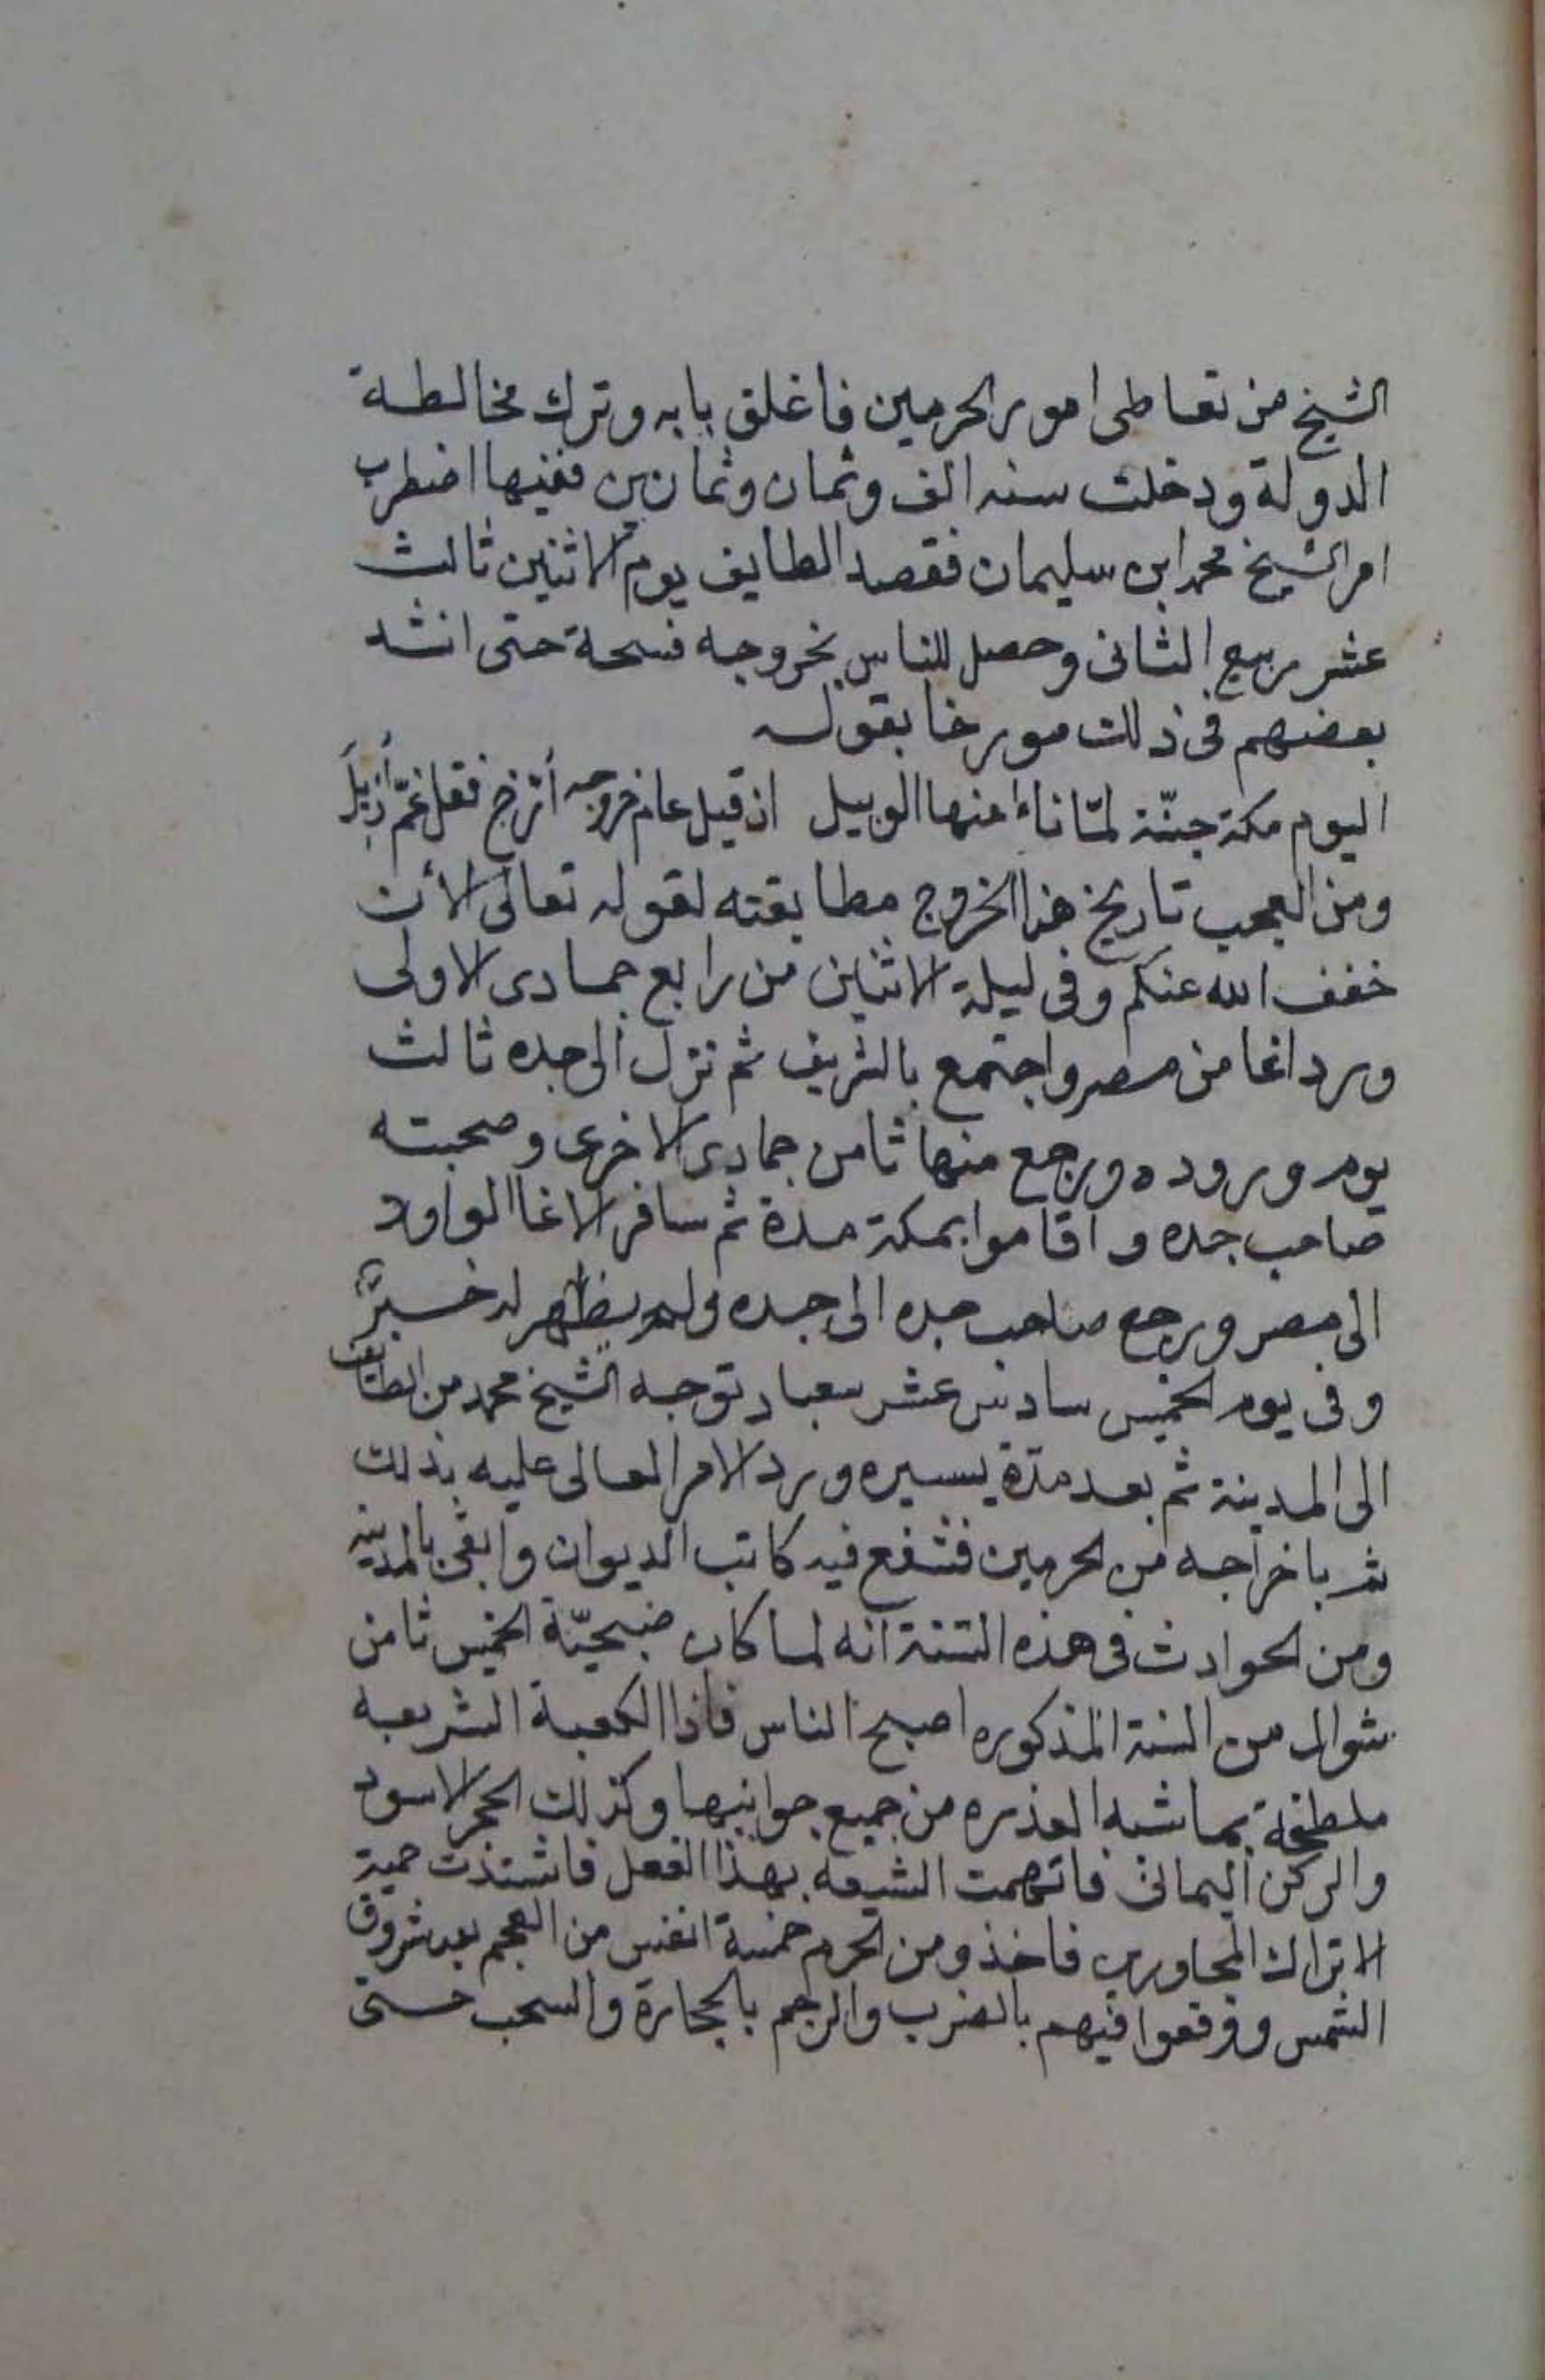 الشيخ من تعاطى امور الحرمين فاغلق بابه وترك مخالطة
الدولة ودخلت سنه الف وثمان وثمانين ففيها اضطرب
امر الشيخ محمد ابن سليمان فقصد الطايف يوم الاثنين ثالث
عشر ربيع الثانى وحصل للناس بخروجه فسحة حتى انشد
بعضهم فى ذلك مورخا بقوله
اليوم مكة جنّة لمّا ناءَ منها الوبيل اذ قيل عام خروجه أُرّخ فقل غمّ أُزيلَ
ومن العجب تاريخ هذا الخروج مطابقته لقوله تعالى الأن
خفف الله عنكم وفى ليلة الاثنين من رابع جمادى الاولى
ورد اغا من مصر واجتمع بالشريف ثم نزل الى جده ثالث
يوم وروده ورجع منها ثامن جمادى الاخرى وصحبته
صاحب جده واقاموا بمكة مدة ثم سافر الاغا الوارد
الى مصر ورجع صاحب جده الى جده ولم يظهر له خبرٌ
وفى يوم الخميس سادس عشر توجه الشيخ محمد من الطايف
الى المدينة ثم بعد مدّة يسيره ورد الامر العالى عليه بذلك
ثم باخراجه من الحرمين فشفع فيه كاتب الديوان وابقى بالمدينه
ومن الحوادث فى هذه السّنة انه لما كان صبحيّة الخميس ثامن
شوال من السنة المذكوره اصبح الناس فاذا الكعبة الشريفه
ملطخة بما شبه العذره من جميع جوانبها وكذلك الحجر الاسود
والركن اليمانى فاتهمت الشيعه بهذا الفعل فاشتدّت حمية
الاتراك المجاورين فاخذو من الحرم خمسة انفس من العجم بعد شروق
الشمس ووقعوا فيهم بالضرب والرجم بالحجارة والسحب حتى